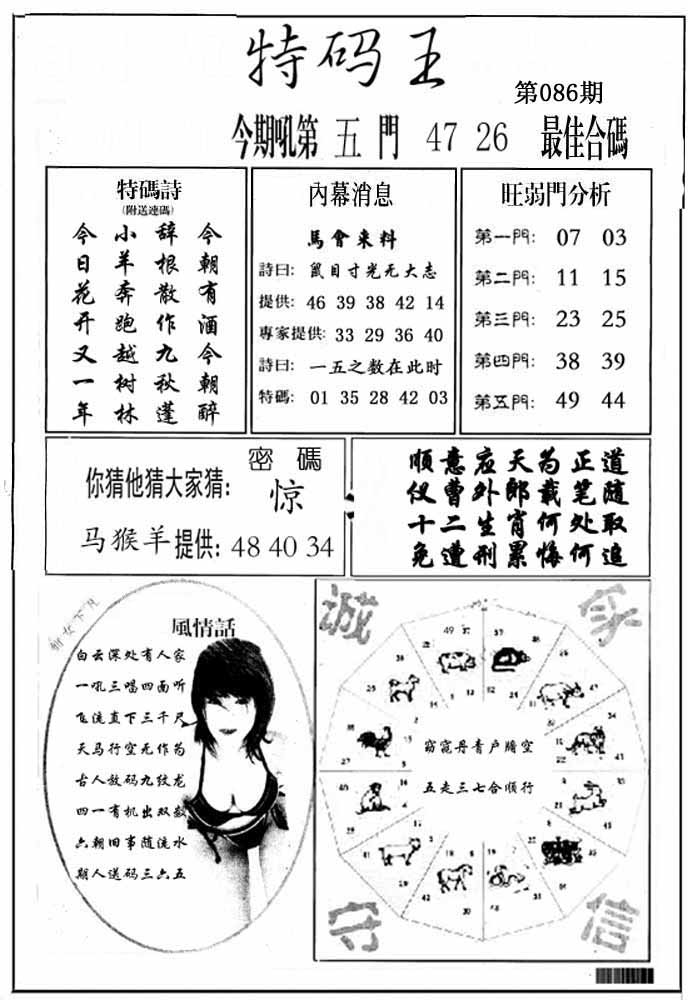 特码王
第086期
今期吼第 五 門 47 26 最佳合碼
特碼詩
(附送連碼)
今朝有酒今朝醉
辞根散作九秋蓬
小羊奔跑越树林
今日花开又一年
內幕消息
馬會来料
詩曰: 鼠目寸光无大志
提供: 46 39 38 42 14
專家提供: 33 29 36 40
詩曰: 一五之数在此时
特碼: 01 35 28 42 03
旺弱門分析
第一門: 07 03
第二門: 11 15
第三門: 23 25
第四門: 38 39
第五門: 49 44
密 碼
你猜他猜大家猜:
惊
马猴羊提供: 48 40 34
顺意应天为正道
仅曹外郎载笔随
十二生肖何处取
免遭刑累悔何追
風情話
白云深处有人家
一吼三唱四面听
飞流直下三千尺
天马行空无作为
古人放码九纹龙
四一有机出双数
六朝旧事随流水
期人送码三六五
诚
信
守
窈窕丹青户牖空
五走三七合顺行